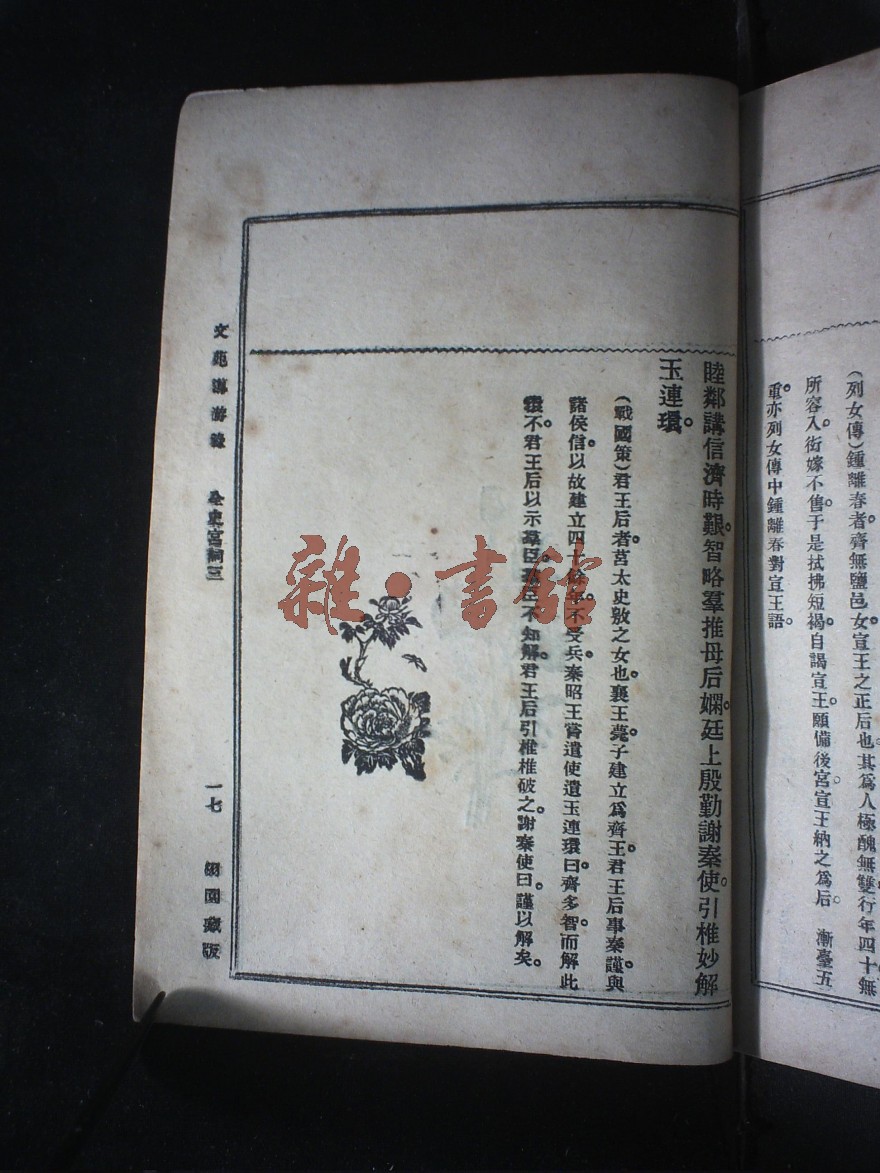 (列女傳)鍾離春者齊無鹽邑女宣王之正后也。其爲人極醜無雙行年四十無
所容入。衒嫁不售。于是拭拂短褐。自謁宣王。願備後宮。宣王納之爲后。 漸臺五
重。亦列女傳中鍾離春對宣王語。
睦鄰講信濟時艱。智略羣推母后嫻。廷上殷勤謝秦使。引椎妙解
玉連環。
(戰國策)君王后者。莒太史敫之女也。襄王薨。子建立爲齊王。君王后事秦謹。與
諸侯信。以故建立四十餘年不受兵。秦昭王嘗遣使遺玉連環曰。齊多智。而解此
環不。君王后以示羣臣。羣臣不知解。君王后引椎椎破之。謝秦使曰。謹以解矣。
文苑導游錄 全史宮詞三 一七 藏版
雜·書館